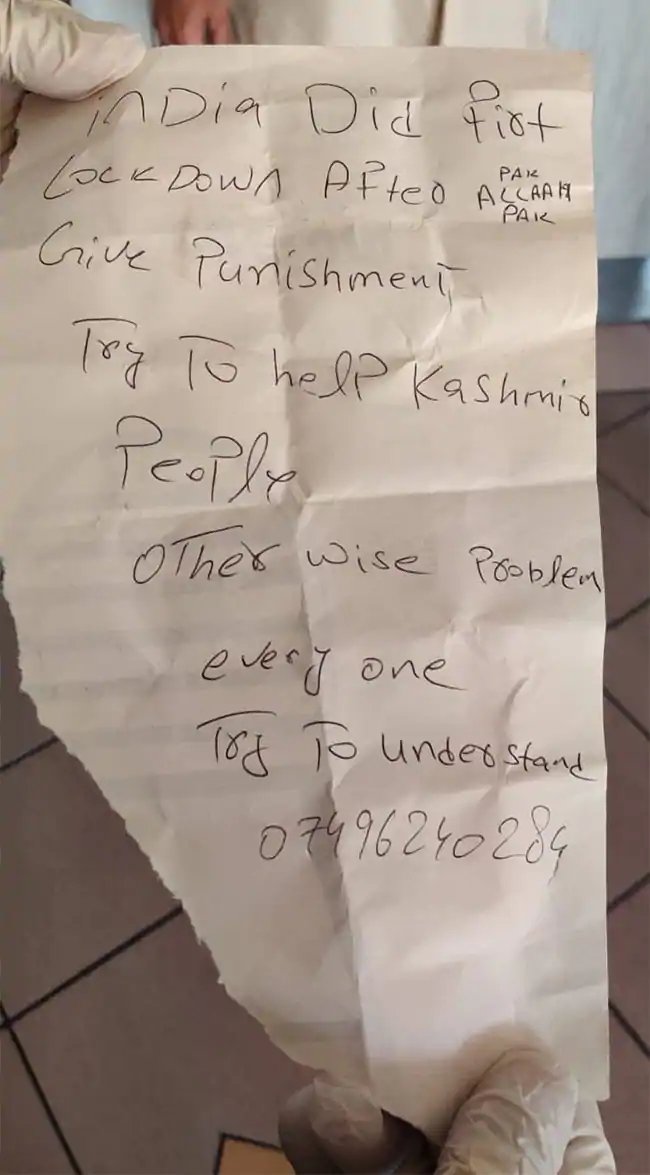 inDia Did first
LOCKDOWN After PAK
ALLAAH
PAK
Give Punishment
Try To help Kashmir
People
OTher wise Problem
every one
Try To understand
07496240284